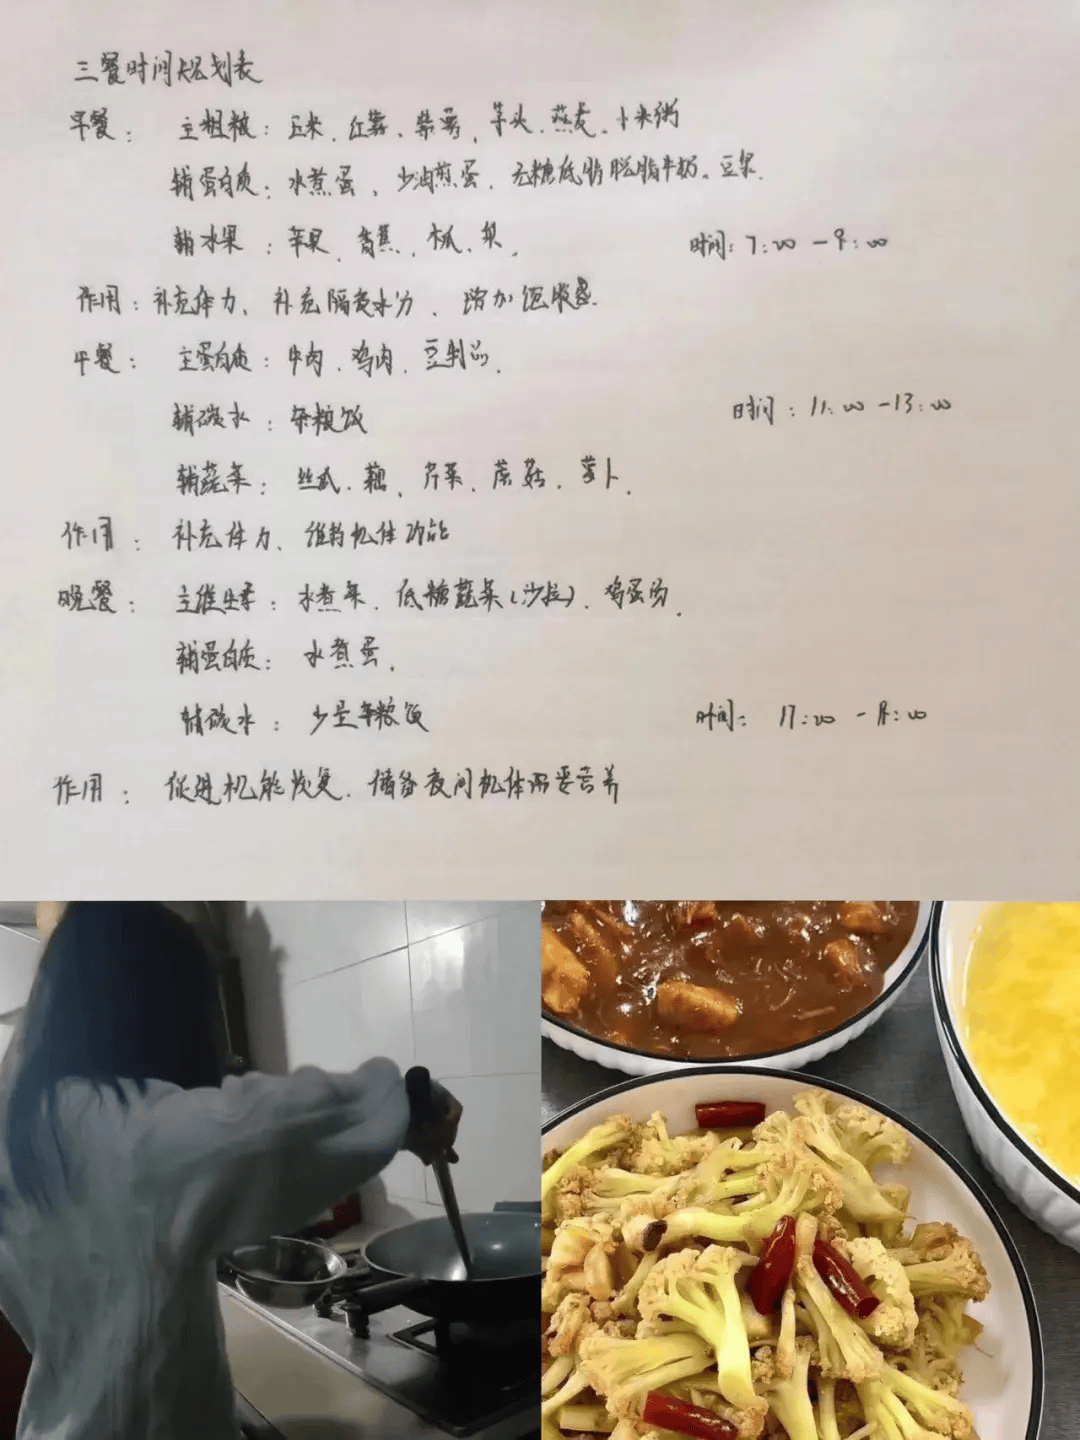 三餐时间规划表
早餐： 主粗粮：玉米、红薯、紫薯、芋头、燕麦、小米粥
辅蛋白质：水煮蛋、少油煎蛋、无糖低脂脱脂牛奶。豆浆.
辅水果：苹果、香蕉、木瓜、梨. 时间：7:00－9:00
作用：补充体力、补充隔夜水分、增加饱腹感.
午餐： 主蛋白质：牛肉、鸡肉、豆制品.
辅碳水：杂粮饭 时间：11:00－13:00
辅蔬菜：丝瓜、藕、芹菜、蘑菇、萝卜.
作用：补充体力、维持机体功能
晚餐： 主维生素：水煮菜、低糖蔬菜(沙拉)、鸡蛋汤.
辅蛋白质：水煮蛋.
辅碳水：少量杂粮饭 时间：17:00－18:00
作用：促进机能恢复、储备夜间机体所要营养